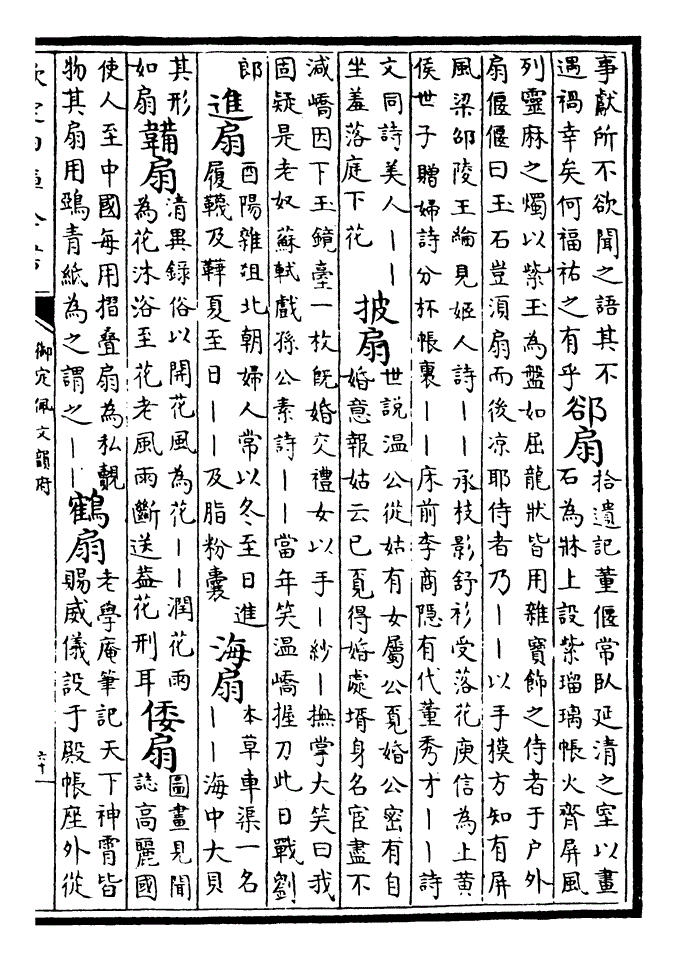 事獻所不欲聞之語其不
遇禍幸矣何福祐之有乎
郤扇
拾遺記董偃常臥延清之室以畫
石為牀上設紫瑠璃帳火齊屏風
列靈麻之燭以紫玉為盤如屈龍狀皆用雜寶飾之侍者于户外
扇偃偃曰玉石豈須扇而後凉耶侍者乃丨丨以手模方知有屏
風梁邵陵王綸見姬人詩丨丨承枝影舒衫受落花庾信為上黄
侯世子贈婦詩分杯帳裏丨丨床前李商隱有代董秀才丨丨詩
文同詩美人丨丨
坐羞落庭下花
披扇
世說温公從姑有女屬公覓婚公密有自
婚意報姑云已覓得婚處壻身名宦盡不
減嶠因下玉鏡臺一枚旣婚交禮女以手丨紗丨撫掌大笑曰我
固疑是老奴蘇軾戲孫公素詩丨丨當年笑温嶠握刀此日戰劉
郎
進扇
酉陽雜俎北朝婦人常以冬至日進
履韈及鞾夏至日丨丨及脂粉囊
海扇
本草車渠一名
丨丨海中大貝
其形
如扇
韛扇
清異錄俗以開花風為花丨丨潤花雨
為花沐浴至花老風雨斷送葢花刑耳
倭扇
圖畫見聞
誌高麗國
使人至中國每用摺疊扇為私覿
物其扇用鵶青紙為之謂之丨丨
鶴扇
老學庵筆記天下神霄皆
賜威儀設于殿帳座外從
欽定四庫全書
御定佩文韻府
六十